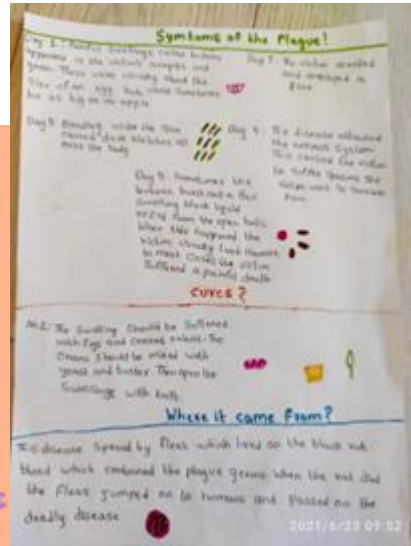 Symtoms of the Plague!
Day 1: Painful Swellings called buboes
appeared in the victim's armpits and
groin. These were usually about the
Size of an egg but could Sometimes
be as big as an apple
Day 2: The victim vomited
and developed a
Day 3: Bleeding under the Skin
caused dark blotches all
over the body
Day 4: The disease attacked
the nervous System
This caused the victim
to Suffer Spasms the
victim was in terrible
Pain
Day 5: Sometimes the
buboes burst and a foul
Smelling black liquid
oozed from the open boils
When this happened the
victim usually lived However
in most cases the victim
Suffered a painful death
cures?
The Swelling Should be Softened
with Figs and cooked onions. The
Onions Should be mixed with
yeast and butter. Then open the
Swellings with knife
Where it came From?
This disease Spread by fleas which lived on the black rat
blood which contained the plague germs when the rat died
the Fleas jumped on to humans and Passed on the
deadly disease
2021/6/23 09:52